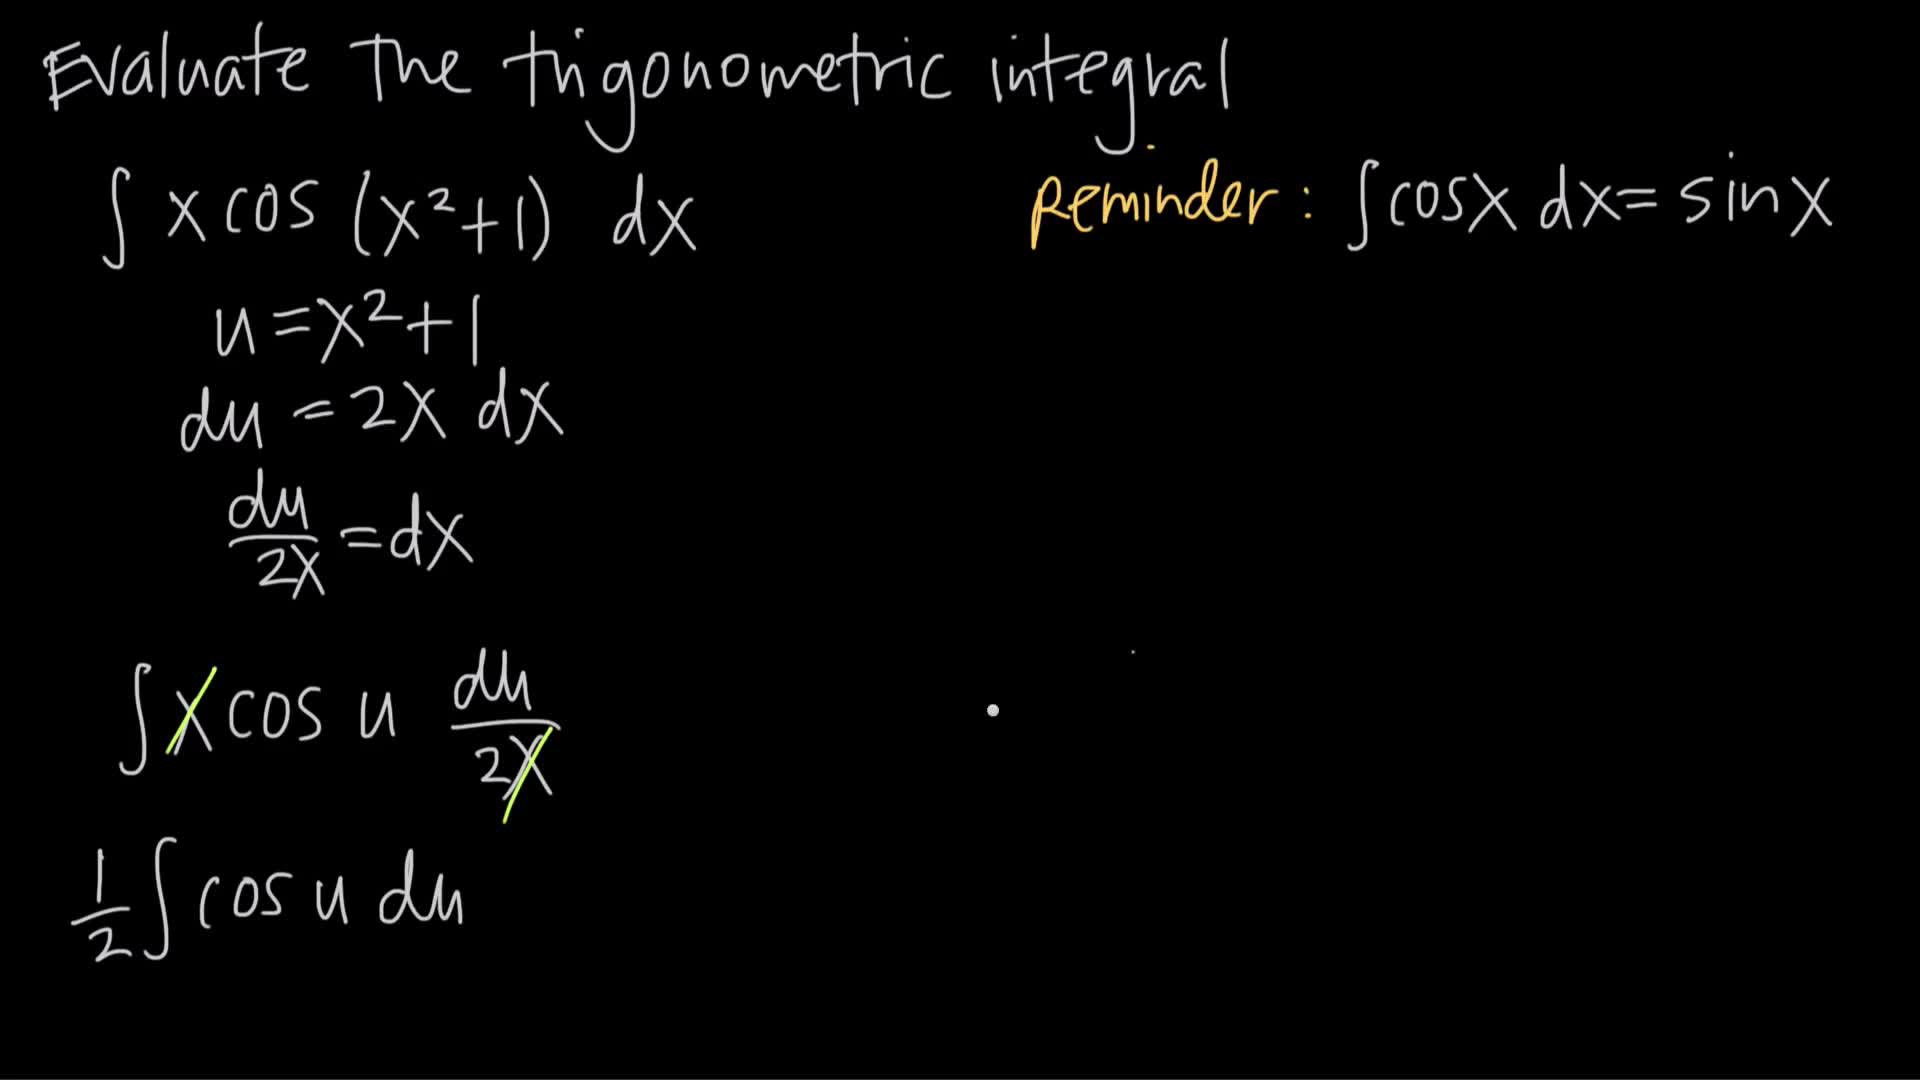 Evaluate the trigonometric integral
∫ x cos (x²+1) dx
Reminder: ∫ cosx dx = sinx
u = x²+1
du = 2x dx
du/2x = dx
∫ x cos u du/2x
1/2 ∫ cos u du